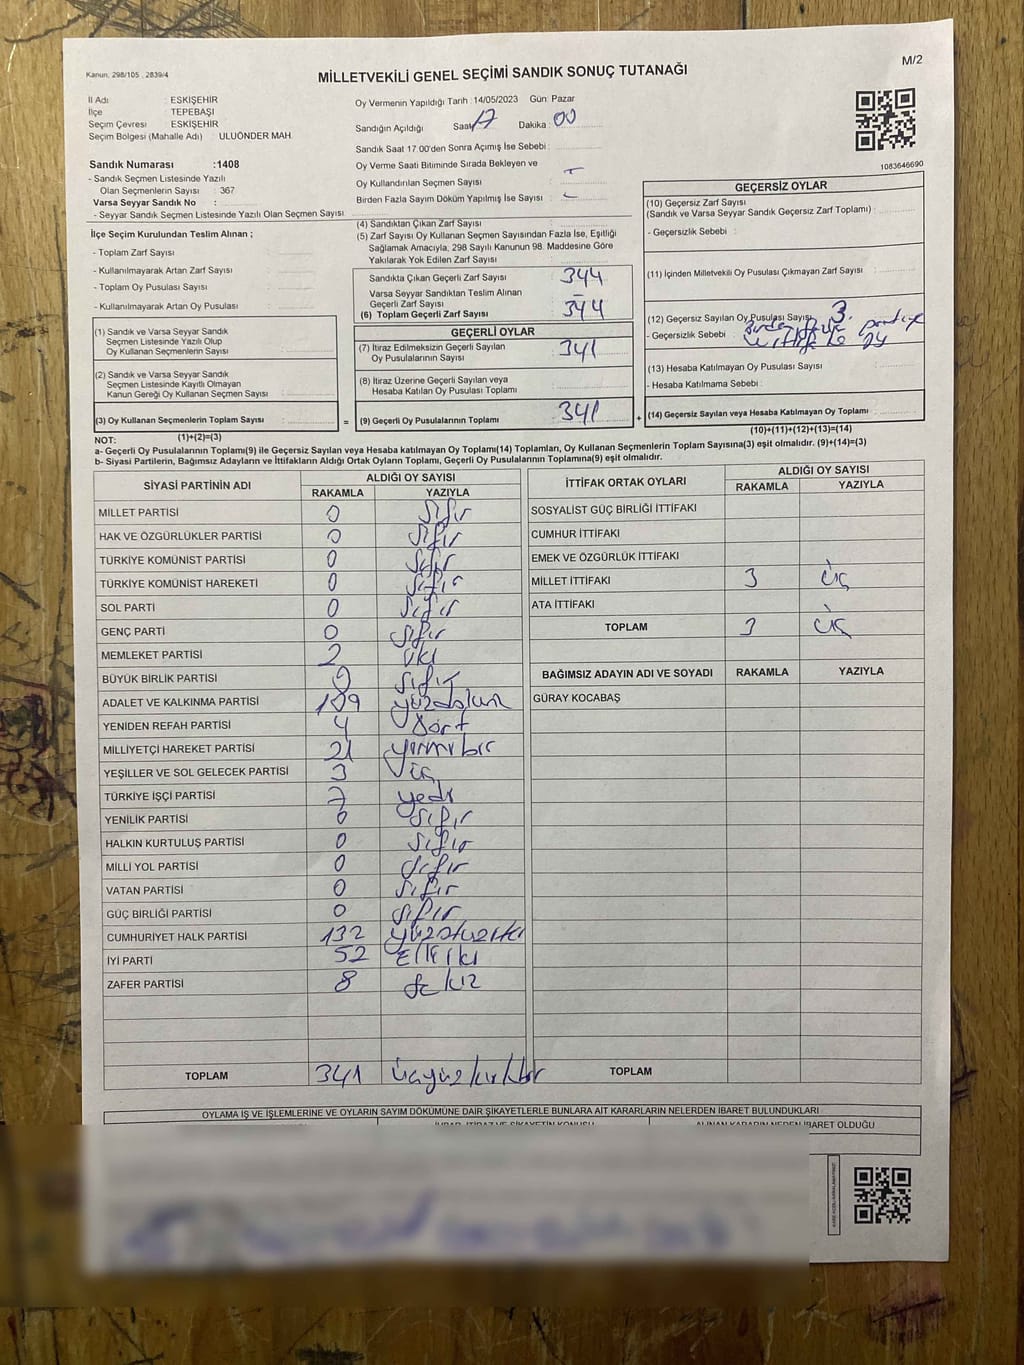 Kanun, 298/105 , 2839/4
M/2
MİLLETVEKİLİ GENEL SEÇİMİ SANDIK SONUÇ TUTANAĞI
İl Adı : ESKİŞEHİR
İlçe : TEPEBAŞI
Seçim Çevresi : ESKİŞEHİR
Seçim Bölgesi (Mahalle Adı) : ULUÖNDER MAH.
Sandık Numarası :1408
- Sandık Seçmen Listesinde Yazılı
Olan Seçmenlerin Sayısı : 367
Varsa Seyyar Sandık No :
- Seyyar Sandık Seçmen Listesinde Yazılı Olan Seçmen Sayısı
Oy Vermenin Yapıldığı Tarih : 14/05/2023 Gün: Pazar
Sandığın Açıldığı Saat 17 Dakika : 00
Sandık Saat 17.00'den Sonra Açımış İse Sebebi :
Oy Verme Saati Bitiminde Sırada Bekleyen ve
Oy Kullandırılan Seçmen Sayısı :
Birden Fazla Sayım Döküm Yapılmış İse Sayısı :
1083646690
İlçe Seçim Kurulundan Teslim Alınan ;
- Toplam Zarf Sayısı :
- Kullanılmayarak Artan Zarf Sayısı :
- Toplam Oy Pusulası Sayısı :
- Kullanılmayarak Artan Oy Pusulası :
(1) Sandık ve Varsa Seyyar Sandık
Seçmen Listesinde Yazılı Olup
Oy Kullanan Seçmenlerin Sayısı :
(2) Sandık ve Varsa Seyyar Sandık
Seçmen Listesinde Kayıtlı Olmayan
Kanun Gereği Oy Kullanan Seçmen Sayısı :
(3) Oy Kullanan Seçmenlerin Toplam Sayısı :
(1)+(2)=(3)
(4) Sandıktan Çıkan Zarf Sayısı :
(5) Zarf Sayısı Oy Kullanan Seçmen Sayısından Fazla İse, Eşitliği
Sağlamak Amacıyla, 298 Sayılı Kanunun 98. Maddesine Göre
Yakılarak Yok Edilen Zarf Sayısı :
Sandıkta Çıkan Geçerli Zarf Sayısı 344
Varsa Seyyar Sandıktan Teslim Alınan
Geçerli Zarf Sayısı : -
(6) Toplam Geçerli Zarf Sayısı : 344
GEÇERLİ OYLAR
(7) İtiraz Edilmeksizin Geçerli Sayılan
Oy Pusulalarının Sayısı : 341
(8) İtiraz Üzerine Geçerli Sayılan veya
Hesaba Katılan Oy Pusulası Toplamı :
= (9) Geçerli Oy Pusulalarının Toplamı : 341 +
GEÇERSİZ OYLAR
(10) Geçersiz Zarf Sayısı
(Sandık ve Varsa Seyyar Sandık Geçersiz Zarf Toplamı) :
- Geçersizlik Sebebi :
(11) İçinden Milletvekili Oy Pusulası Çıkmayan Zarf Sayısı :
(12) Geçersiz Sayılan Oy Pusulası Sayısı : 3.
- Geçersizlik Sebebi
(13) Hesaba Katılmayan Oy Pusulası Sayısı :
- Hesaba Katılmama Sebebi :
(14) Geçersiz Sayılan veya Hesaba Katılmayan Oy Toplamı :
(10)+(11)+(12)+(13)=(14)
NOT:
a- Geçerli Oy Pusulaları Toplam(9) ile Geçersiz Sayılan veya Hesaba katılmayan Oy Toplamı(14) Toplamları, Oy Kullanan Seçmenlerin Toplam Sayısına(3) eşit olmalıdır. (9)+(14)=(3)
b- Siyasi Partilerin, Bağımsız Adayların ve İttifakların Aldığı Ortak Oyların Toplamı, Geçerli Oy Pusulalarının Toplamına(9) eşit olmalıdır.
SİYASİ PARTİNİN ADI
ALDIĞI OY SAYISI
RAKAMLA YAZIYLA
MİLLET PARTİSİ 0 sıfır
HAK VE ÖZGÜRLÜKLER PARTİSİ 0 sıfır
TÜRKİYE KOMÜNİST PARTİSİ 0 sıfır
TÜRKİYE KOMÜNİST HAREKETİ 0 sıfır
SOL PARTİ 0 sıfır
GENÇ PARTİ 0 sıfır
MEMLEKET PARTİSİ 2 iki
BÜYÜK BİRLİK PARTİSİ 0 sıfır
ADALET VE KALKINMA PARTİSİ 109
YENİDEN REFAH PARTİSİ 4 dört
MİLLİYETÇİ HAREKET PARTİSİ 21 yirmibir
YEŞİLLER VE SOL GELECEK PARTİSİ 3 üç
TÜRKİYE İŞÇİ PARTİSİ 7 yedi
YENİLİK PARTİSİ 0 sıfır
HALKIN KURTULUŞ PARTİSİ 0 sıfır
MİLLİ YOL PARTİSİ 0 sıfır
VATAN PARTİSİ 0 sıfır
GÜÇ BİRLİĞİ PARTİSİ 0 sıfır
CUMHURİYET HALK PARTİSİ 132 yüzotuziki
İYİ PARTİ 52 elliiki
ZAFER PARTİSİ 8 sekiz
TOPLAM 341 üçyüzkırkbir
İTTİFAK ORTAK OYLARI
ALDIĞI OY SAYISI
RAKAMLA YAZIYLA
SOSYALİST GÜÇ BİRLİĞİ İTTİFAKI
CUMHUR İTTİFAKI
EMEK VE ÖZGÜRLÜK İTTİFAKI
MİLLET İTTİFAKI 3 üç
ATA İTTİFAKI
TOPLAM 3 üç
BAĞIMSIZ ADAYIN ADI VE SOYADI RAKAMLA YAZIYLA
GÜRAY KOCABAŞ
TOPLAM
OYLAMA İŞ VE İŞLEMLERİNE VE OYLARIN SAYIM DÖKÜMÜNE DAİR ŞİKAYETLERLE BUNLARA AİT KARARLARIN NELERDEN İBARET BULUNDUKLARI
İHBAR, İTİRAZ VE ŞİKAYETİN KONUSU
ALINAN KARARIN NEDEN İBARET OLDUĞU